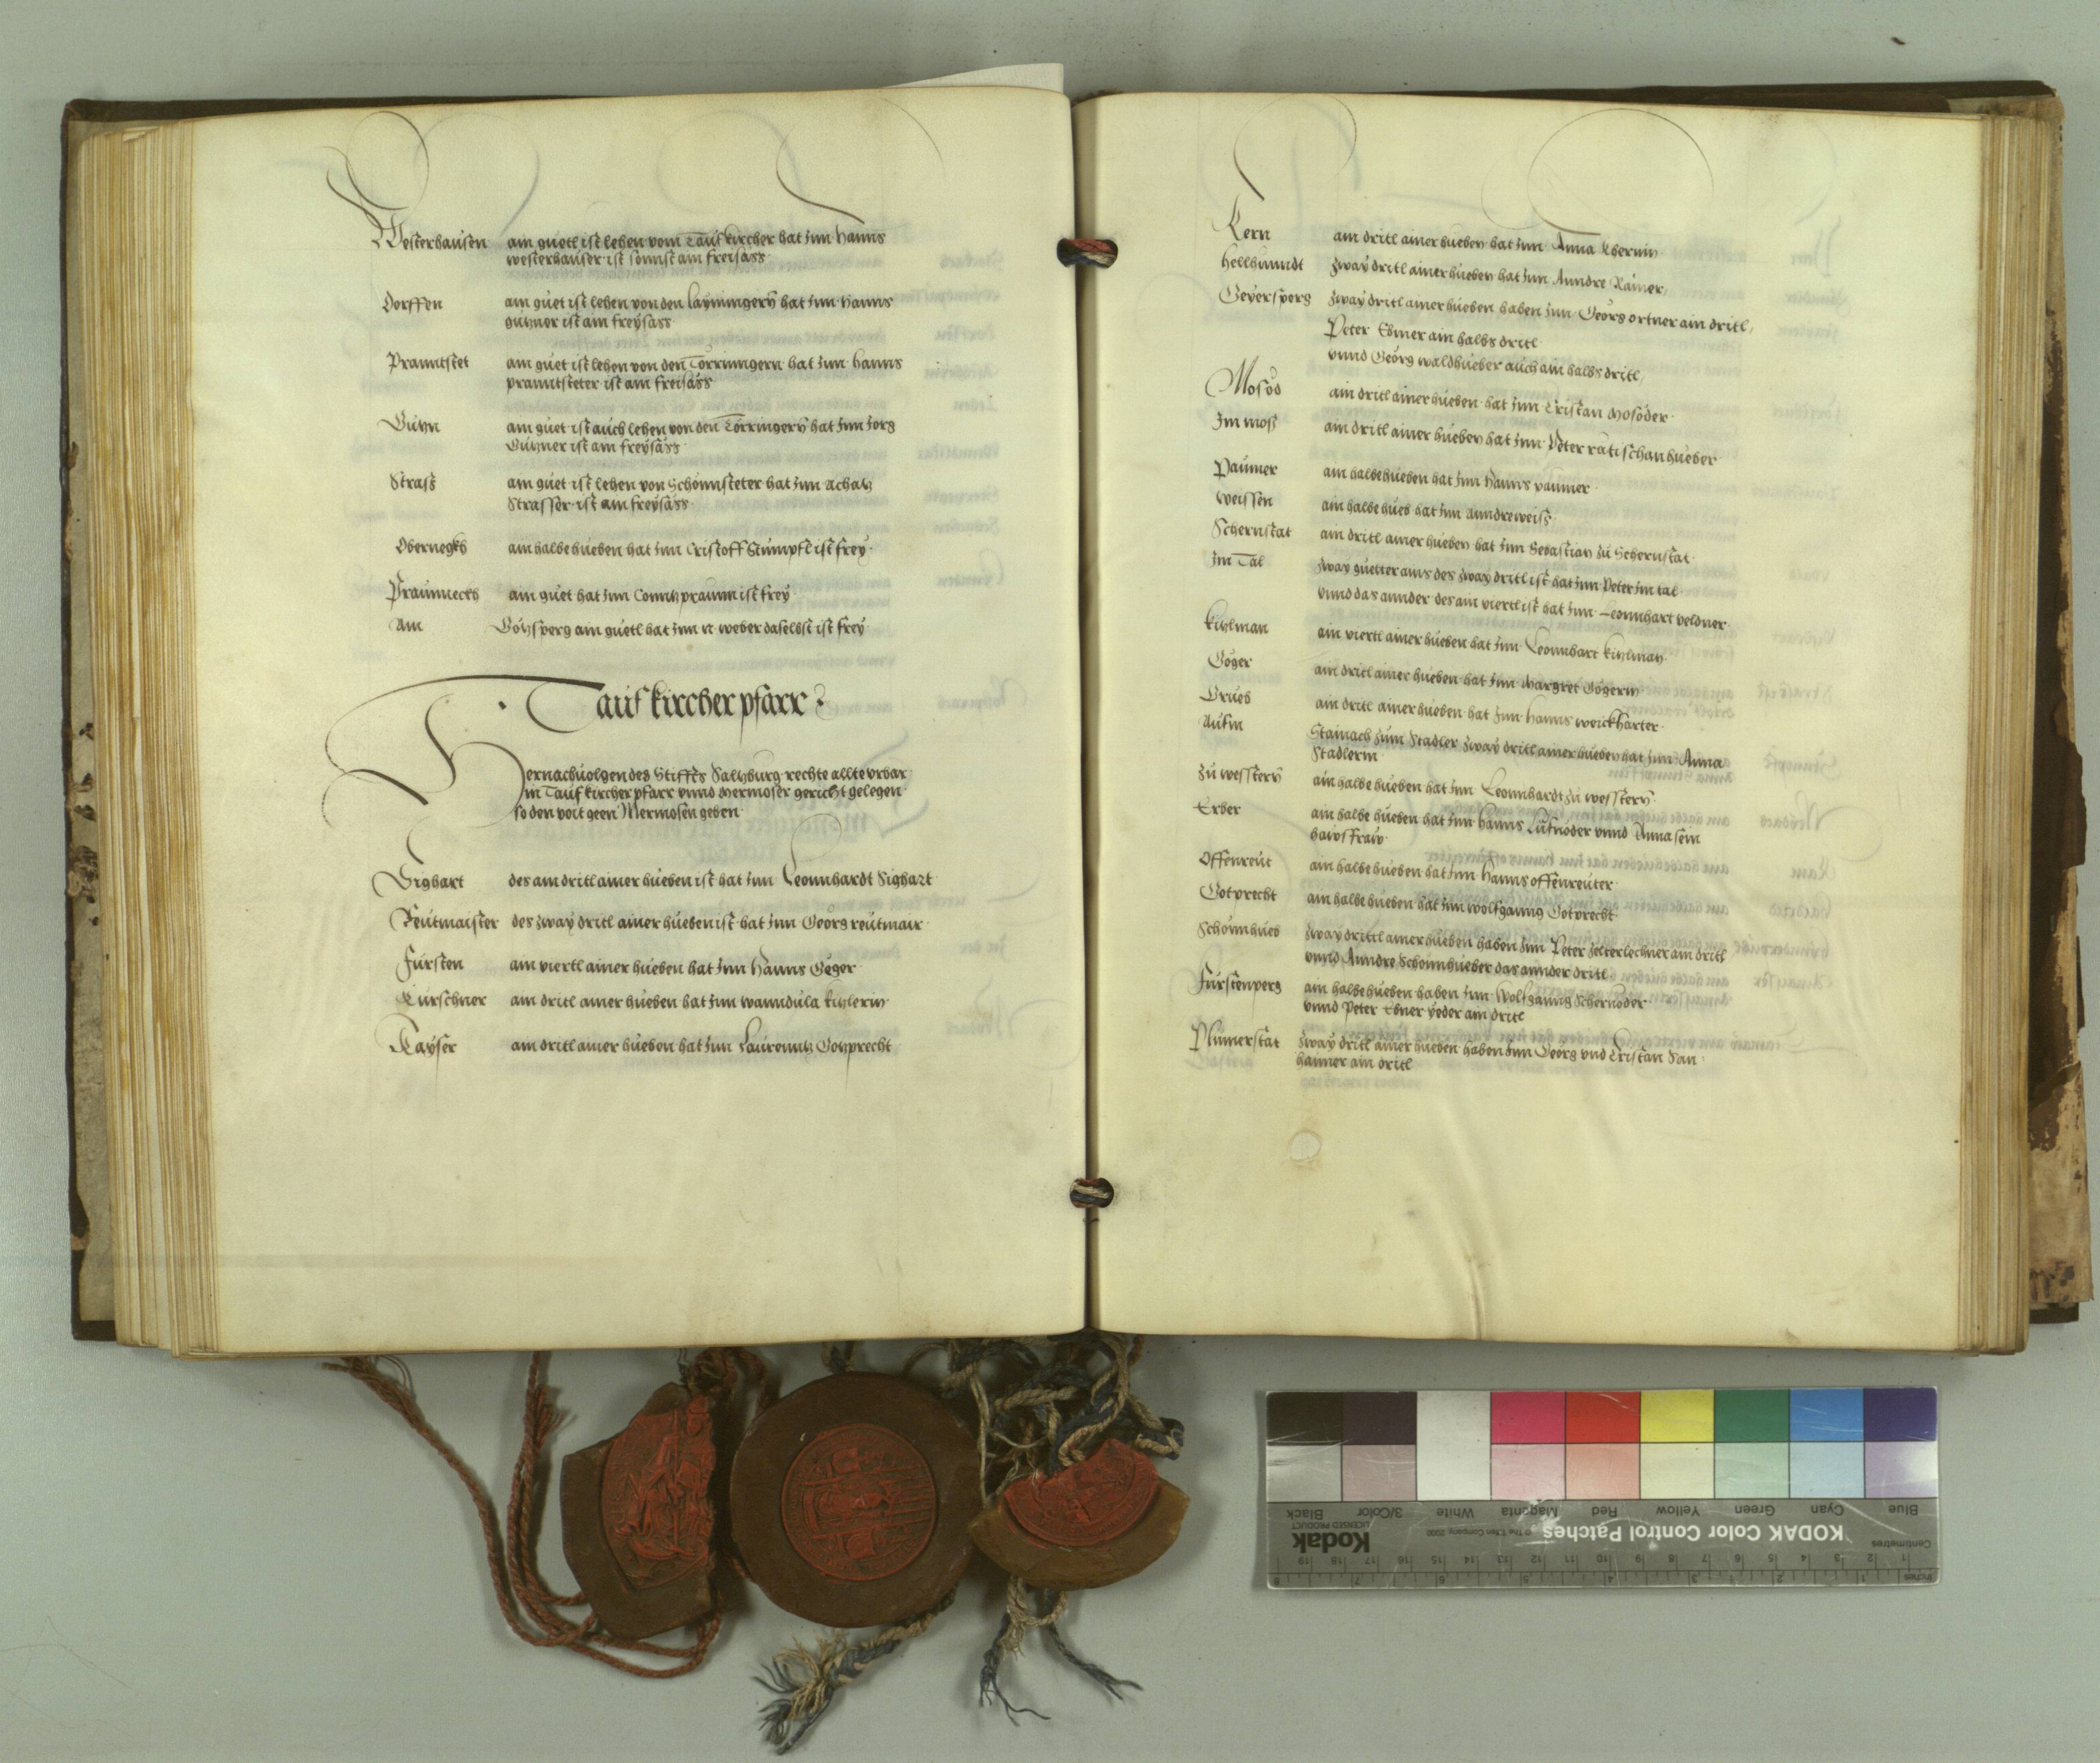 Westerhausen ain guetl ist lehen vom Taufkircher hat Inn Hanns
westerhauser ist sonnst ain freisäss
Dorffen ain guet ist lehen von den Layningern hat Inn Hanns
gutzner ist ain freysäss
Pranntstet ain guet ist lehen von den Törringern hat Inn Hanns
pranntsteter ist ain freisäss
Gutzn ain guet ist auch lehen von den Törringern hat Inn Jorg
Gutzner ist ain freysäss
Strass ain guet ist lehen von Schonnsteter hat Inn Achatz
Strasser ist ain freysäss
Obernegkh ain halbe hueben hat Inn Cristoff Stumpfl ist frey
Praunneckh ain guet hat Inn Conntz praunn ist frey
Am Götzsperg ain guetl hat Inn n weber daselbst ist frey
Taufkircher pfarr
Hernachuolgen des Stiffts Saltzburg rechte allte vrbar
in Taufkircher pfarr vnnd Mermoser gericht gelegen
so den voit geen Mermosen geben
Sighart des ain dritl ainer hueben ist hat Inn Leonnhardt Sighart
Reutmaister des zway dritl ainer hueben ist hat Inn Georg reutmair
Fursten ain viertl ainer hueben hat Inn Hanns Geger
Kurschner ain dritl ainer hueben hat Inn wanndula kitzlerin
Kayser ain dritl ainer hueben hat Inn Laurenntz Gotzprecht
Kern ain dritl ainer hueben hat Inn Anna Khernin
Hellhunndt zway dritl ainer hueben hat Inn Anndre Rainer
Geyersperg zway dritl ainer hueben haben Inn Georg ortner ain dritl
Peter Ebner ain halbs dritl
vnnd Georg waldhueber auch ain halbs dritl
Mosöd ain dritl ainer hueben hat Inn Cristan Mosöder
Im mos ain dritl ainer hueben hat Inn Peter ratischanhueber
Paumer ain halbe hueben hat Inn Hanns paumer
Weissen ain halbe hueb hat Inn Anndre weiss
Schernstat ain dritl ainer hueben hat Inn Sebastian zu Schernstat
Im Tal zway guetter ains des zway dritl ist hat Inn Peter Im tal
vnnd das annder des ain viertl ist hat Inn Leonnhart veldner
Kitzlman ain viertl ainer hueben hat Inn Leonnhart kitzlman
Göger ain dritl ainer hueben hat Inn Margret Gögerin
Grueb ain dritl ainer hueben hat Inn Hanns weickharter
Aufm Stainach zum Stadler zway dritl ainer hueben hat Inn Anna
Stadlerin
Zu western ain halbe hueben hat Inn Leonnhardt zu western
Erber ain halbe hueben hat Inn Hanns Lufnoder vnnd Anna sein
hawsfraw
Offenreut ain halbe hueben hat Inn Hanns offenreuter
Gotprecht ain halbe hueben hat Inn wolfganng Gotprecht
Schönnhueb zway drittl ainer hueben haben Inn Peter zelterlechner ain dritl
vnnd Anndre Schönnhueber das annder dritl
Furstenperg ain halbe hueben haben Inn Wolfganng Schernöder
vnnd Peter Ebner yeder ain dritl
Plumerstat zway dritl ainer hueben haben Inn Georg vnd Cristan San
hainer ain dritl
Blue Cyan Green Yellow Red Magenta White 3/Color Black
KODAK Color Control Patches © The Tiffen Company, 2000 Kodak
LICENSED PRODUCT
Centimetres
1 2 3 4 5 6 7 8 9 10 11 12 13 14 15 16 17 18 19
Inches 1 2 3 4 5 6 7 8